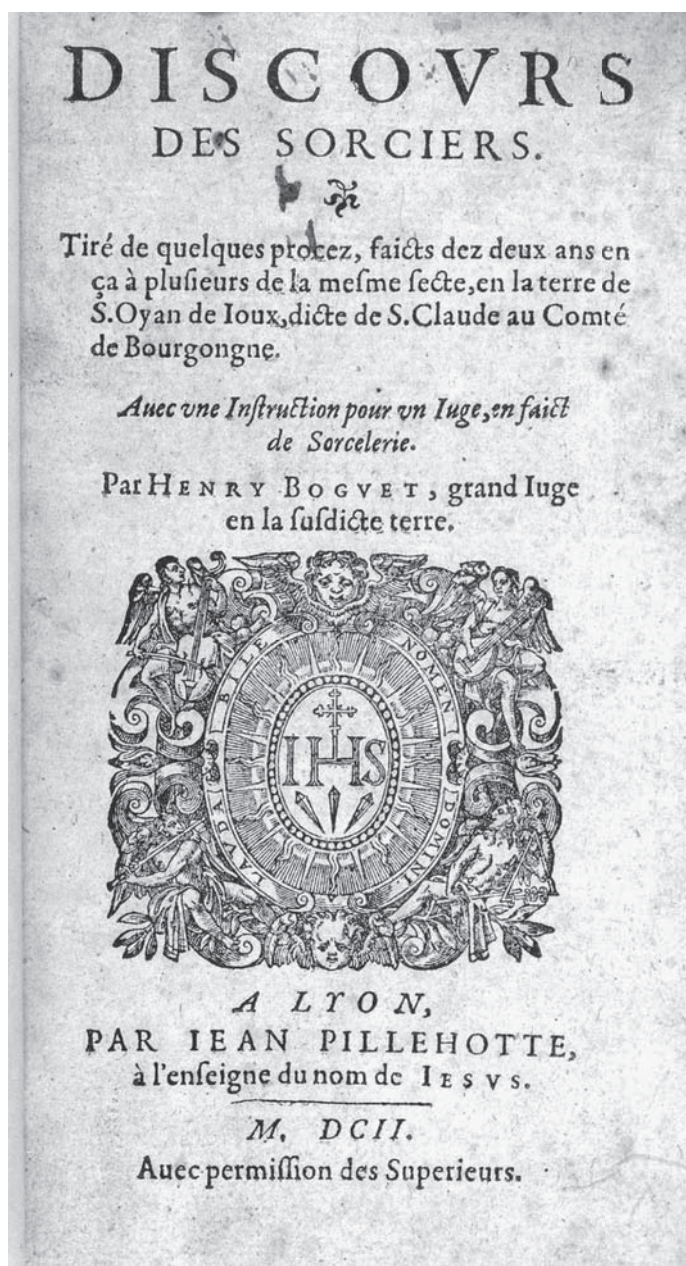 DISCOVRS
DES SORCIERS.
Tiré de quelques procez, faicts dez deux ans en
ça à plusieurs de la mesme secte, en la terre de
S. Oyan de Ioux, dicte de S. Claude au Comté
de Bourgongne.
Auec vne Instruction pour vn Iuge, en faict
de Sorcelerie.
Par HENRY BOGVET, grand Iuge
en la susdicte terre.
LAVDA BILE NOMEN DOMINI
IHS
A LYON,
PAR IEAN PILLEHOTTE,
à l'enseigne du nom de IESVS.
M. DCII.
Auec permission des Superieurs.